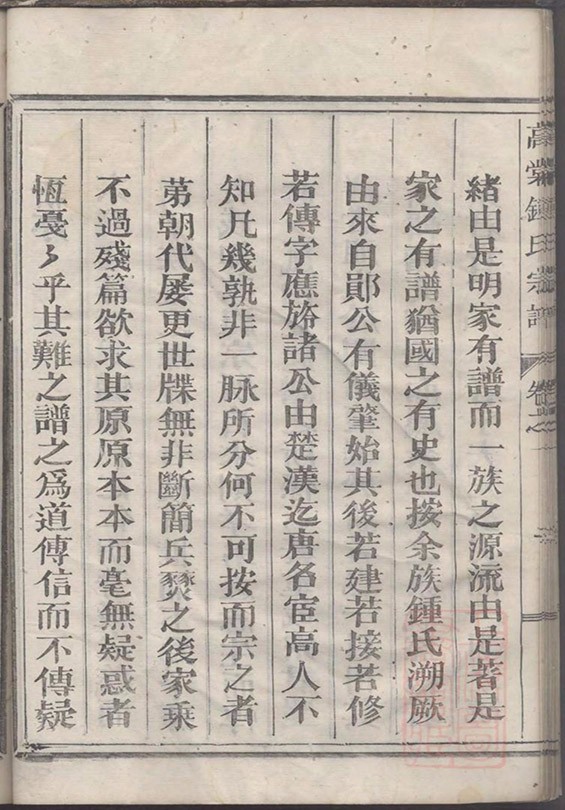 高棠鍾氏宗譜
卷之
緒由是明家有譜而一族之源流由是著是
家之有譜猶國之有史也按余族鍾氏溯厥
由來自鄖公有儀肇始其後若建若接若修
若傳字應旂諸公由楚漢迄唐名宦高人不
知凡幾孰非一脉所分何不可按而宗之者
苐朝代屡更世牒無非斷簡兵燹之後家乗
不過殘篇欲求其原原本本而毫無疑惑者
恆戞〻乎其難之譜之爲道傳信而不傳疑